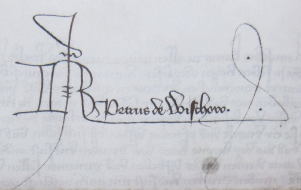 R Petrus de Wischow.